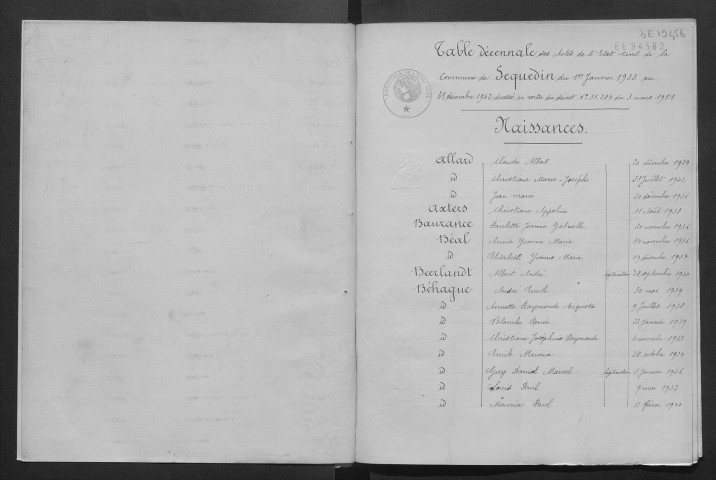 5E19656
EE94182
Table Décennale des Actes de l'Etat civil de la
Commune de Sequedin du 1er Janvier 1933 au
31 décembre 1942 dressée en vertu du décret N° 51.284 du 3 mars 1951
Naissances.
Allard Claude Albert 20 décembre 1939
id Christiane Marie Josèphe 31 Juillet
id Jean Marie 30 décembre 1936
Axters Christiane 11 Août 1938
Baurance Paulette Jeanne Gabrielle 30 novembre 1936
Béal Annie Yvonne Marie 14 novembre 1936
id Elisabeth Yvonne Marie 19 décembre 1934
Beerlandt Albert André 28 septembre
Béhague André Emile 30 mai 1939
id Annette Raymonde 9 Juillet 1938
id Renée 23 Janvier 1939
id Christiane Joséphine Raymonde 4 novembre 1933
id Emile Maurice 28 octobre 1934
id Guy Daniel Marcel 5 Janvier 1936
id Louis Paul 9 1937
id Maurice Paul 11 février